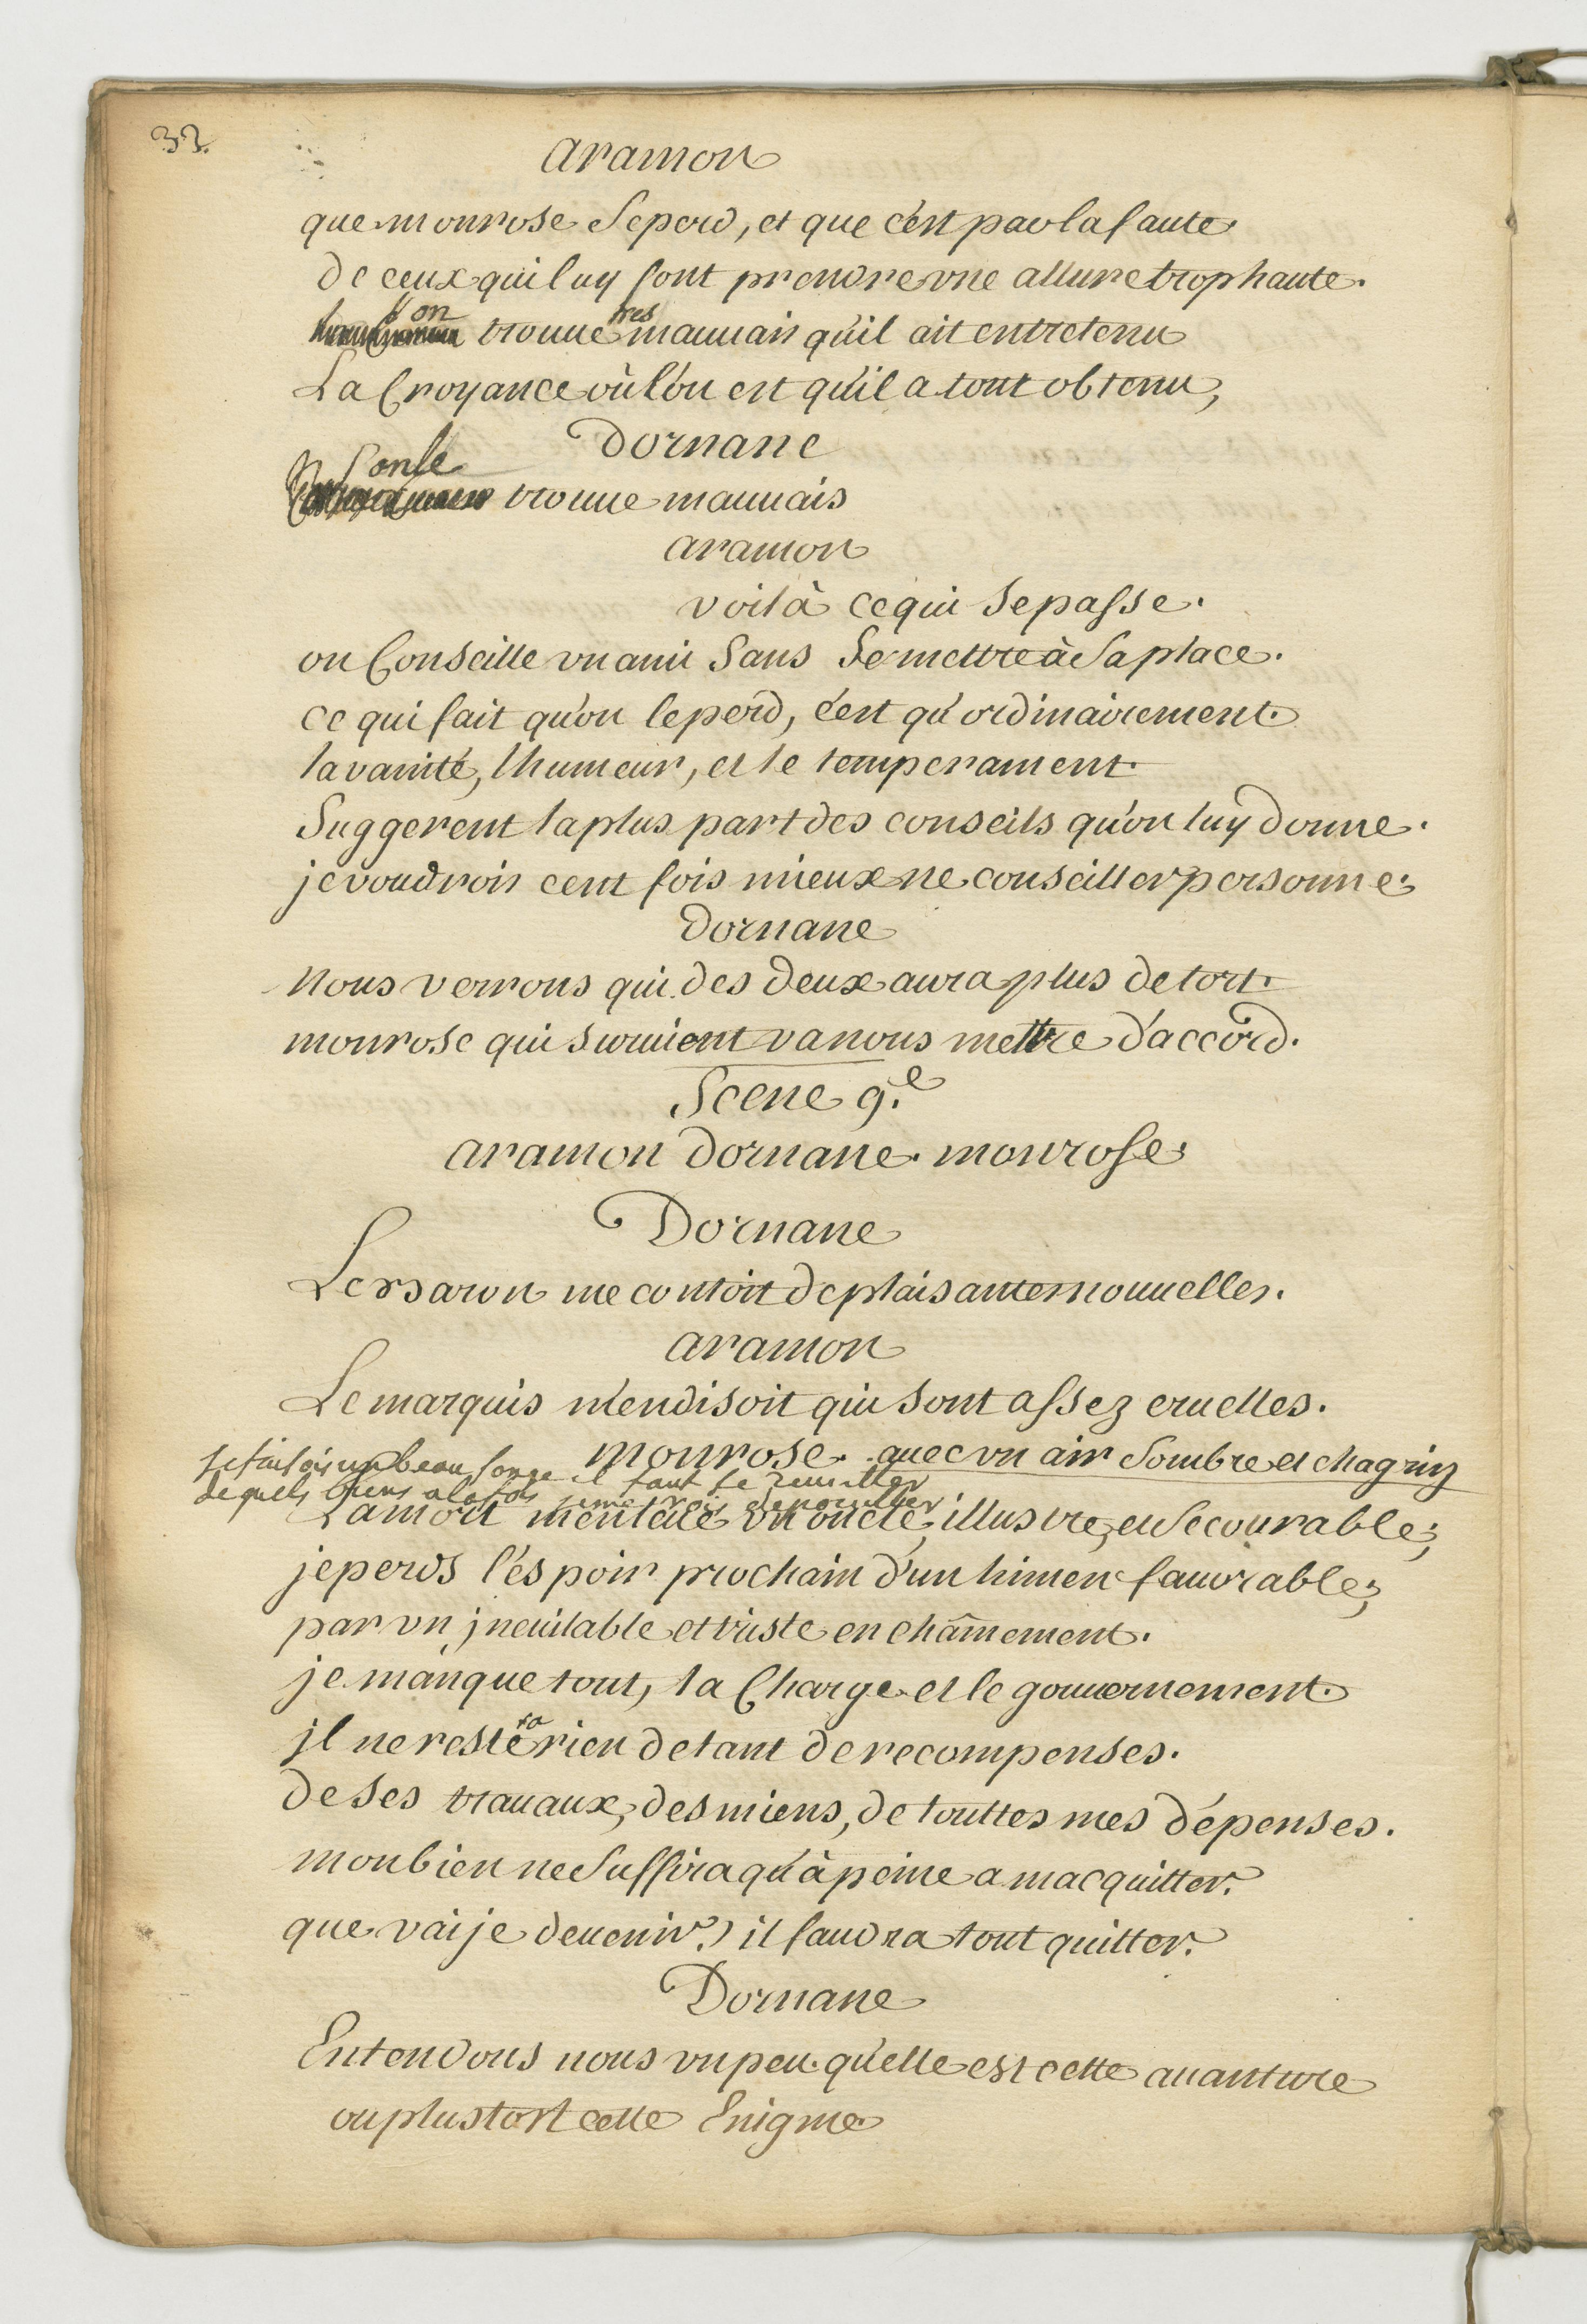 32.
aramon
que monrose Se perd, et que c'est par la faute
de ceux qui luy font prendre vne allure trop haute.
l'on trouue tres mauuais qu'il ait entretenu
La Croyance où l'on est qu'il a tout obtenu,
Dornane
l'on le trouue mauuais
aramon
voilà ce qui se passe.
on Conseille vn ami Sans Se mettre à Sa place.
ce qui fait qu'on le perd, c'est qu'ordinairement
la vanité, l'humeur, et le temperament
Suggerent la plus part des conseils qu'on luy donne.
je voudrois cent fois mieux ne conseiller personne
dornane
Nous verrons qui des deux aura plus de tort.
monrose qui suruient va nous mettre d'accord.
Scene 9.e
aramon dornane. monrose
Dornane
Le Baron me contoit de plaisantes nouuelles.
aramon
Le marquis m'en disoit qui sont assez cruelles.
monrose. auec vn air Sombre et chagrin
Je faisois un beau songe il faut se reueiller
de quels biens a la fois je me vois depouiller
La mort m'enleue vn oncle, illustre, et Secourable,
je perds l'espoir prochain d'un himen fauorable,
par vn jneuitable et triste enchâinement.
je manque tout, la Charge et le gouuernement.
jl ne restera rien de tant de recompenses.
de ses trauaux, des miens, de touttes mes dépenses.
mon bien ne Suffira qu'à peine a m'acquitter.
que vai je deuenir? il faudra tout quitter.
Dornane
Entendons nous vn peu. qu'elle est cette auanture
ou plustost cette Enigme